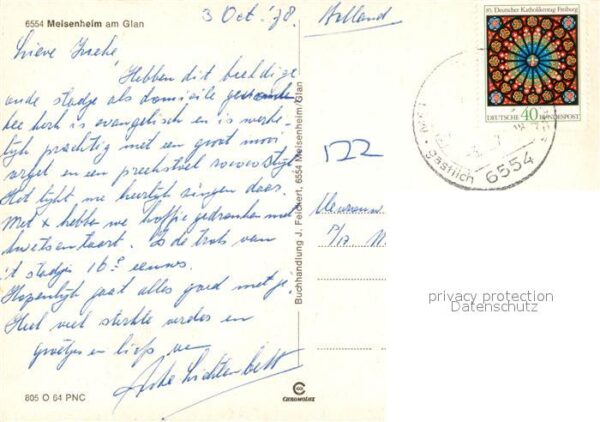 6554 Meisenheim am Glan
3 Oct. '78.
Holland
Lieve
Hebben dit beeldige
oude stadje als domicilie
kerk is evangelisch en is werke-
lijk prachtig met een groot mooi
orgel en een preekstoel rococostijl
Het lijkt me heerlijk zingen daar.
Met + hebben we koffie gedronken met
kwetsentaart. Is de trots van
't stadje 16e eeuws.
Hopenlijk gaat alles goed met je.
Heel veel sterkte verder en
groetjes en liefs van
805 O 64 PNC
Buchhandlung J. Feickert, 6554 Meisenheim/Glan
122
Mevrouw
85. Deutscher Katholikentag Freiburg
DEUTSCHE 40 BUNDESPOST
gastlich 6554
CHROMOLUX
privacy protection
Datenschutz